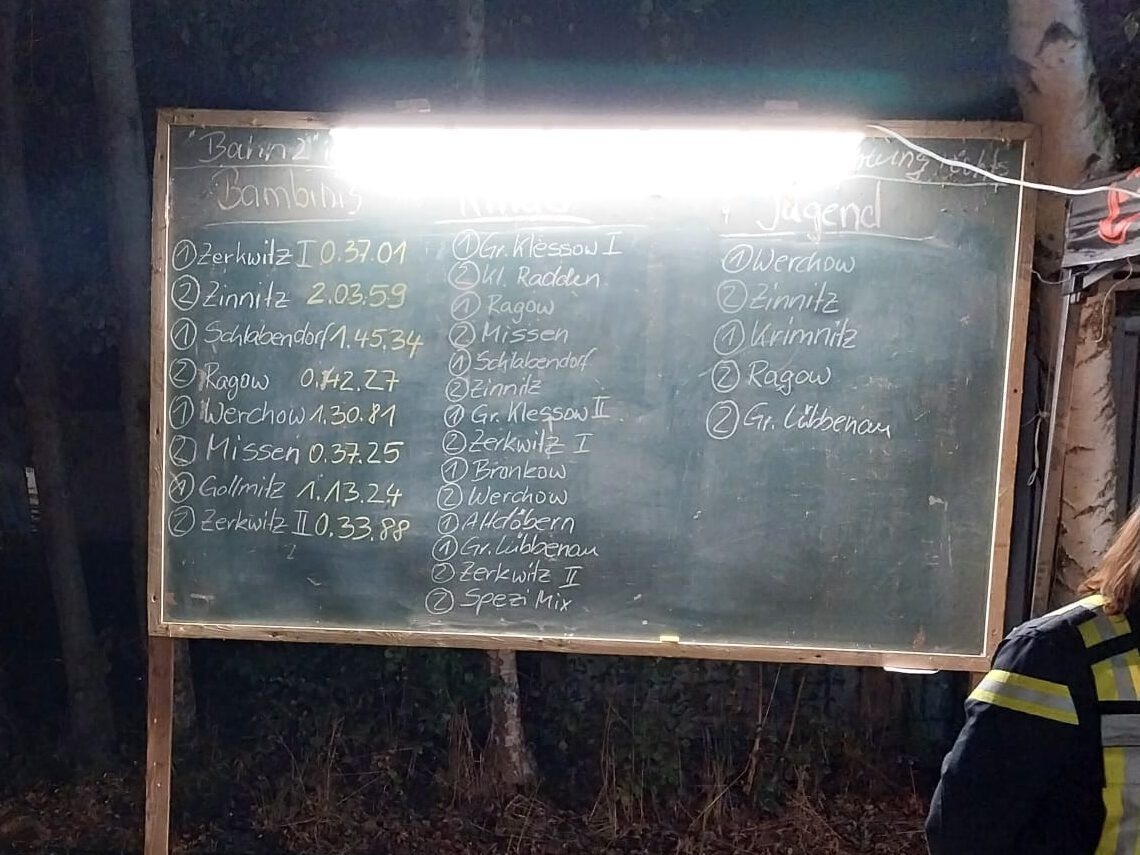 "Bahn 2"
Bambinis
① Zerkwitz I 0.37.01
② Zinnitz 2.03.59
① Schlabendorf 1.45.34
② Ragow 0.42.27
① Werchow 1.30.81
② Missen 0.37.25
① Gollmitz 1.13.24
② Zerkwitz II 0.33.88
Kinder
① Gr. Klessow I
② Kl. Radden
① Ragow
② Missen
① Schlabendorf
② Zinnitz
① Gr. Klessow II
② Zerkwitz I
① Bronkow
② Werchow
① Altdöbern
① Gr. Lübbenau
② Zerkwitz II
② Spezi Mix
rechts
Jugend
① Werchow
② Zinnitz
① Krimnitz
② Ragow
② Gr. Lübbenau